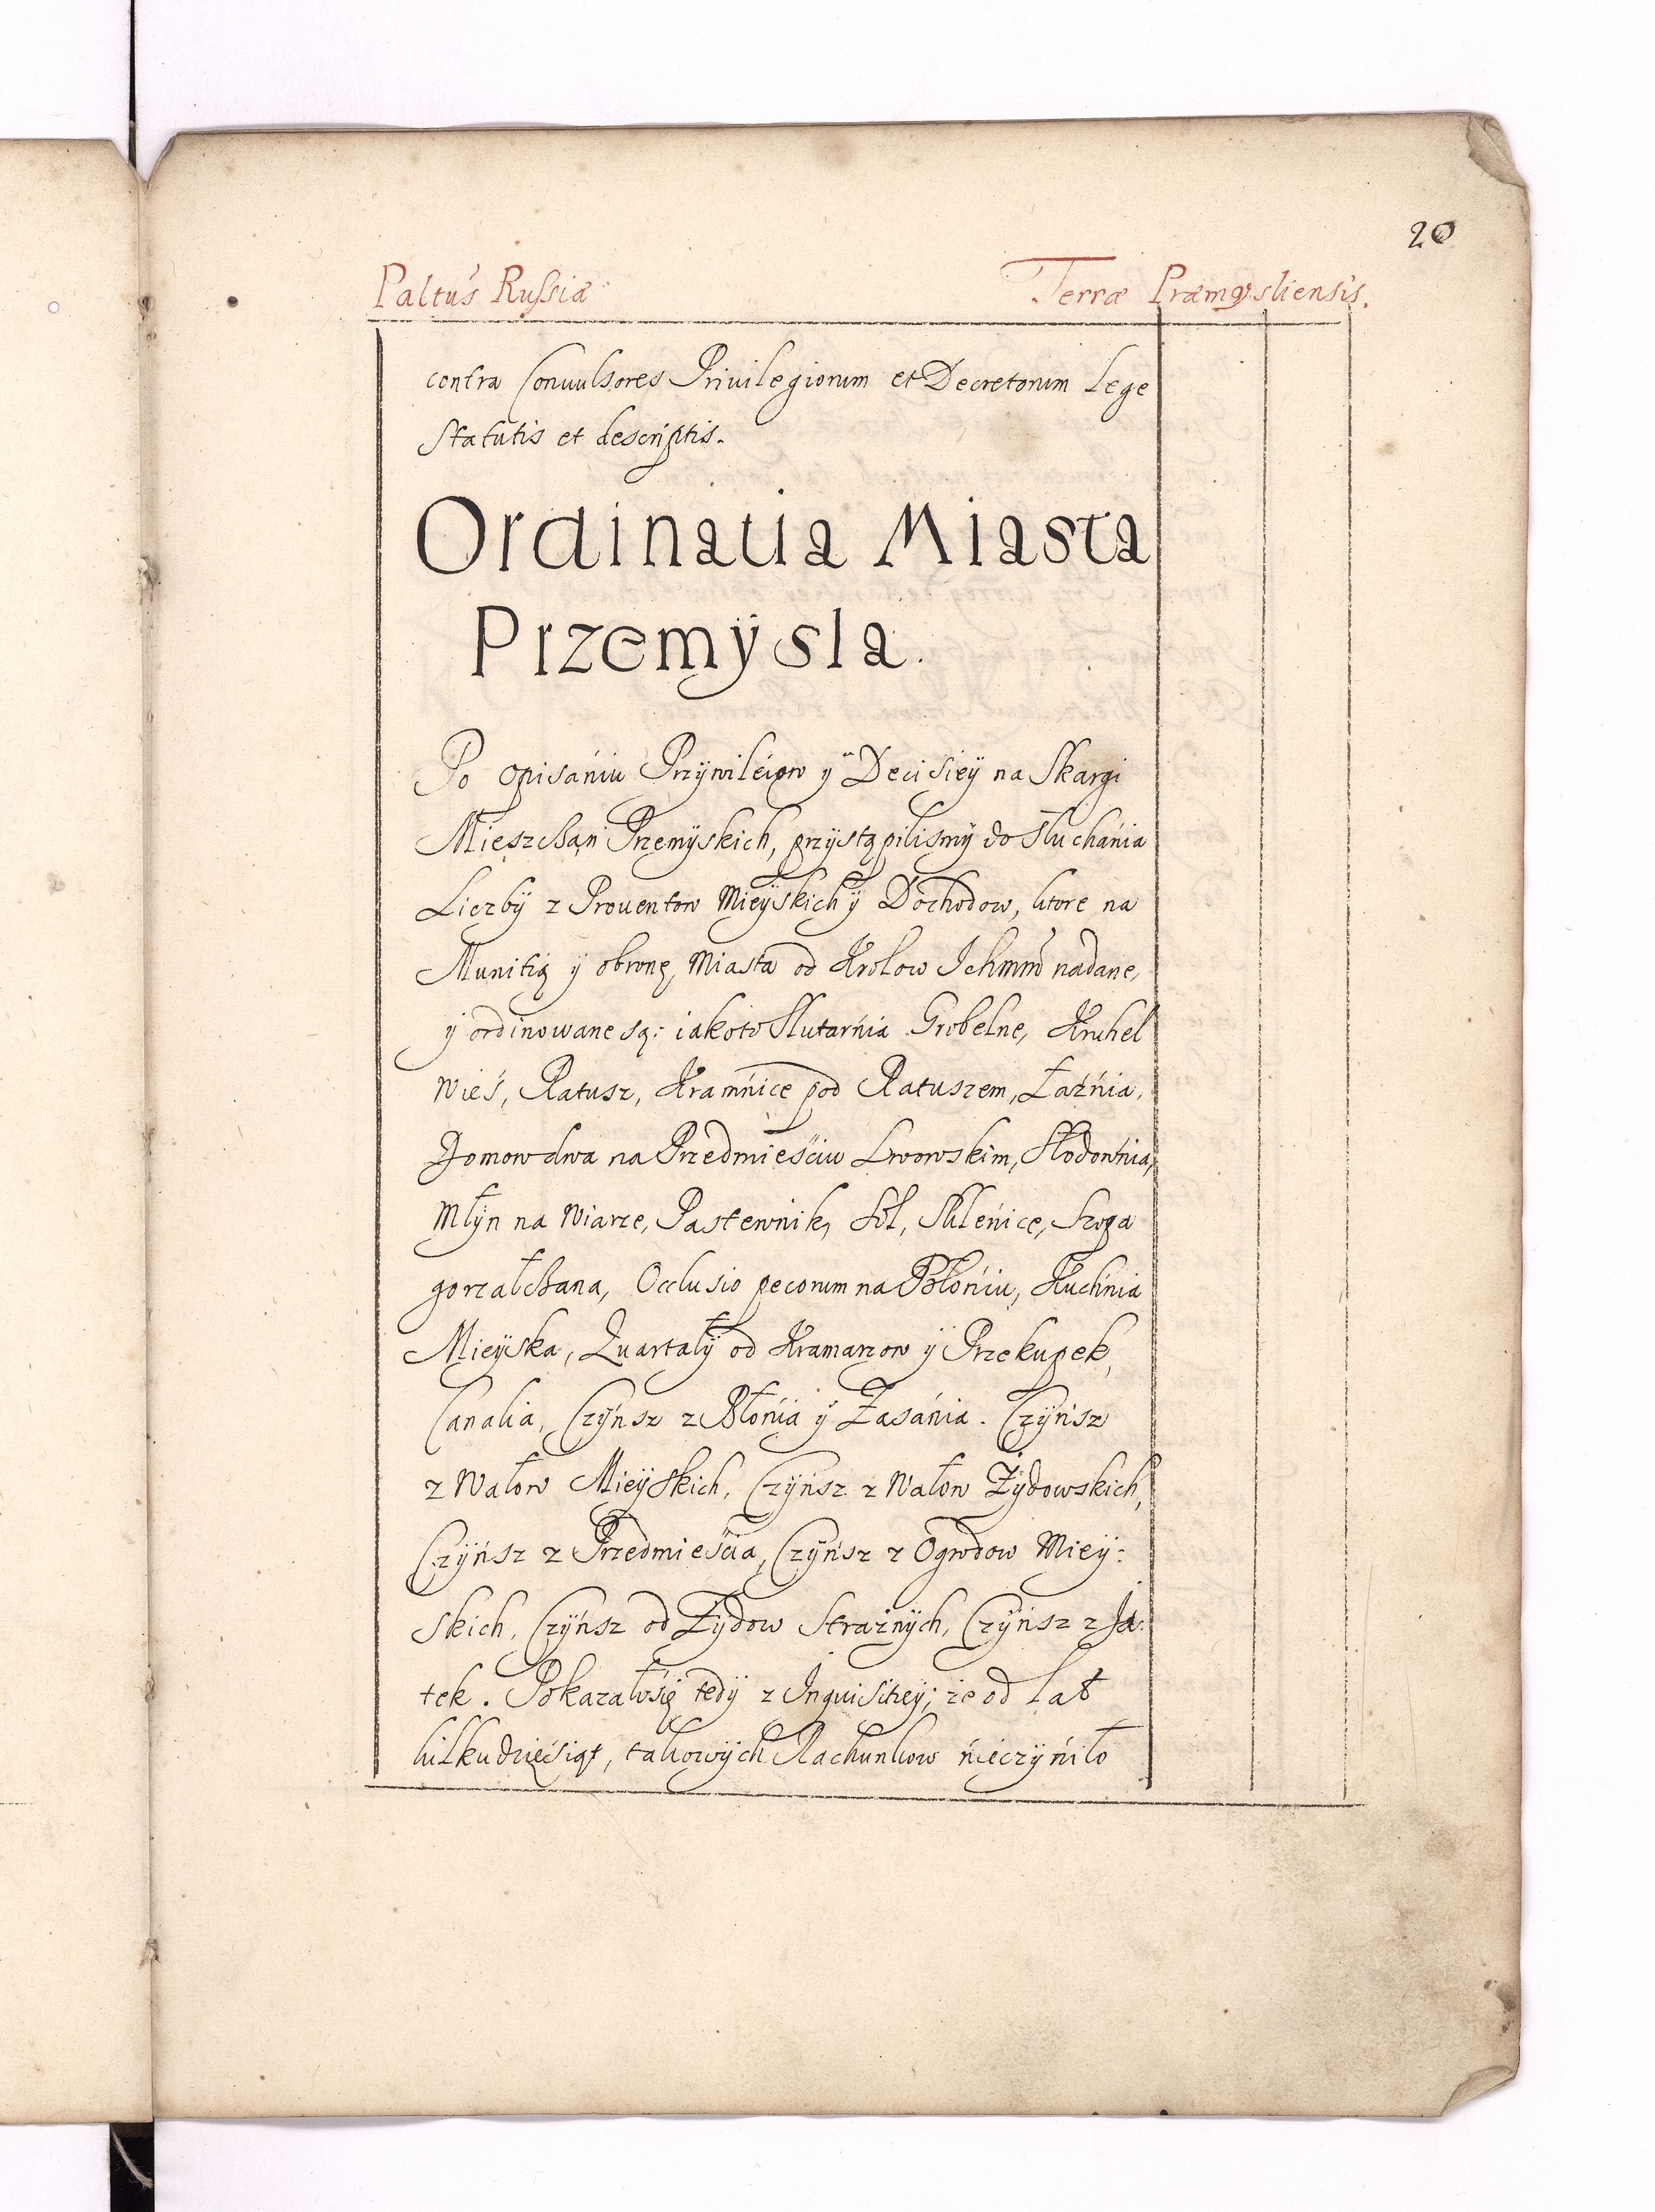 20
Paltus Russiæ Terræ Præmysliensis.
contra Conuulsores Priuilegiorum et Decretorum Lege
Statutis et descriptis.
Ordinatia Miasta
Przemÿsla.
Po opisániu Przÿwileiow ÿ Decisieÿ na Skargi
Mieszczan Przemÿskich, przÿstąpilismÿ do słuchánia
Liczbÿ z Prouentow Mieÿskich ÿ Dochodow, ktore na
Munitią ÿ obronę, Miasta od Krolow Ichmm̃ nadane,
ÿ ordinowane są: iakoto Slutárnia Grobelne, Kruhel
wieś, Ratusz, Kramńice pod Ratuszem, Łaźńia,
Domow dwa na Przedmieściu Lwowskim, Słodowńia,
Młÿn na Wiarze, Pastewnik, Sol, Skleńice, Szopa
gorzałczana, Occlusio pecorum na Błońiu, Kuchńia
Mieÿska, Quartałÿ od Kramarzow ÿ Przekupek,
Canalia, Czÿńsz z Błońia ÿ Zasánia. Czÿńsz
z Wałow Mieÿskich, Czÿńsz z Wałow Żÿdowskich,
Czÿńsz z Przedmieścia, Czÿńsz z Ogrodow Mieÿ:
skich, Czÿńsz od Żÿdow Strażnÿch, Czÿńsz z Ja:
tek. Pokazałosię tedÿ z Inquisitieÿ; że od lat
kilkudzieśiąt, takowÿch Rachunkow ńieczÿńiło